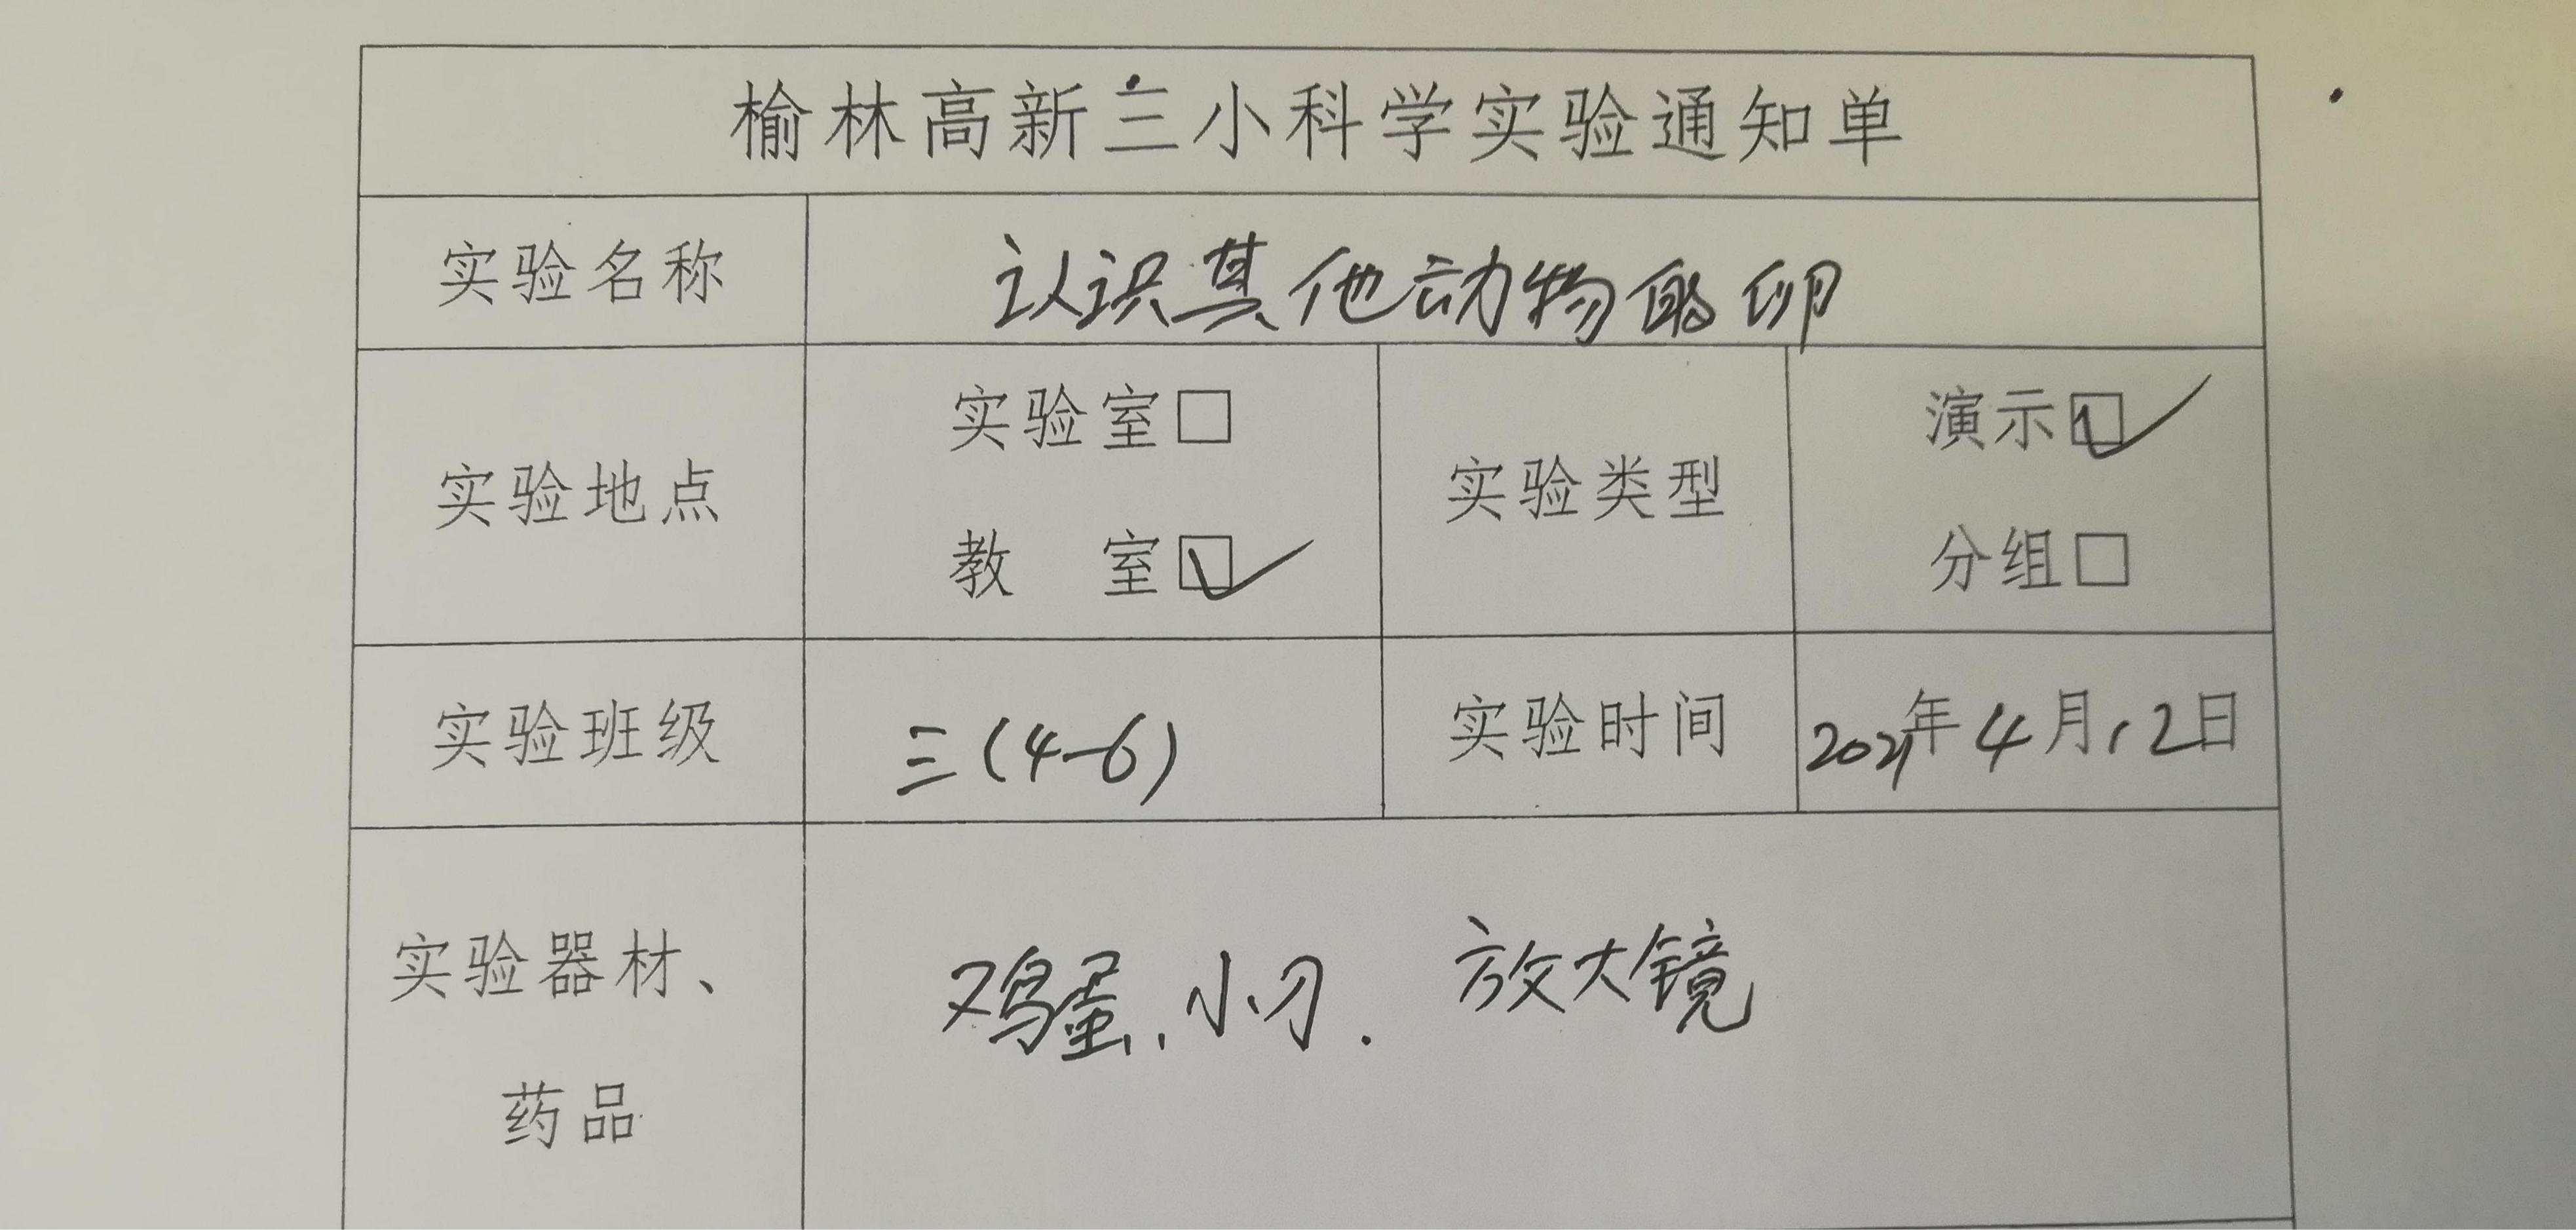 榆林高新三小科学实验通知单
实验名称 认识其他动物的卵
实验地点 实验室□ 教 室☑ 实验类型 演示☑ 分组□
实验班级 三(4-6) 实验时间 2021年4月12日
实验器材、药品 鸡蛋、小刀、放大镜